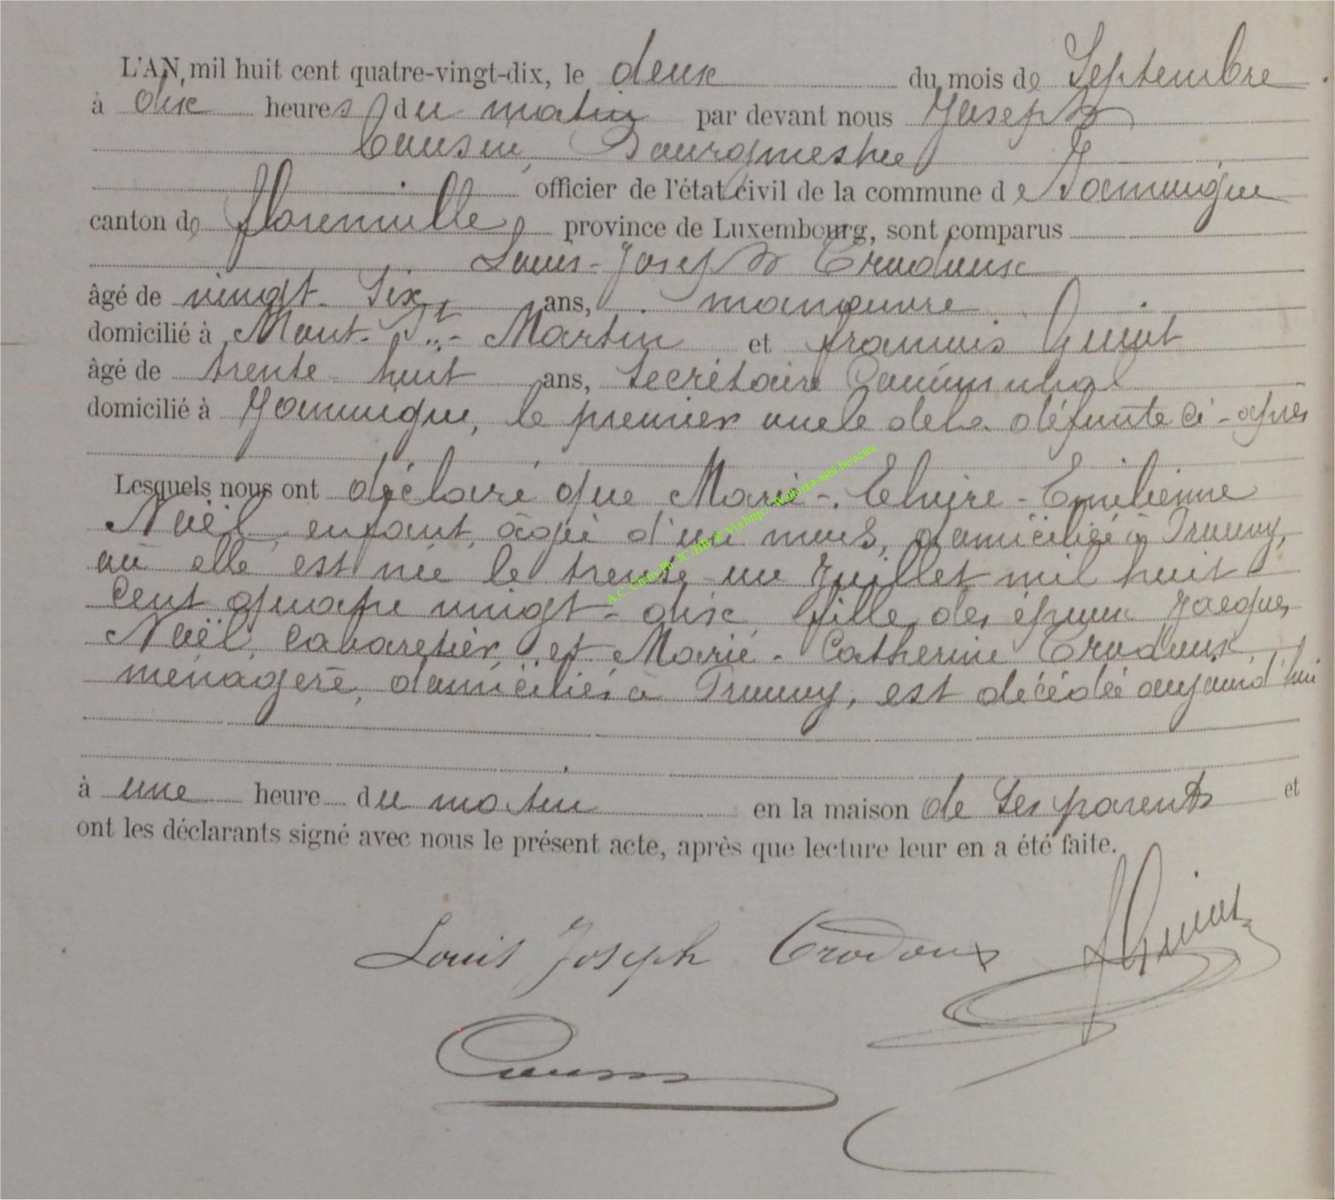 L'AN mil huit cent quatre-vingt-dix, le deux du mois de Septembre
à dix heures du matin par devant nous Joseph
Cousin, Bourgmestre
officier de l'état civil de la commune de Jamoigne
canton de Florenville, province de Luxembourg, sont comparus
Louis-Joseph Crudoux
âgé de vingt-six ans, manœuvre
domicilié à Mont-St-Martin et François Guiot
âgé de trente-huit ans, Secrétaire Communal
domicilié à Jamoigne, le premier oncle de la défunte ci-après
Lesquels nous ont déclaré que Marie-Elvire-Emilienne
Noël, enfant, âgée d'un mois, domiciliée à Prouvy,
où elle est née le trente un Juillet mil huit
cent quatre vingt-dix, fille des époux Jacques
Noël, cabaretier et Marie-Catherine Crudoux
ménagère, domiciliés à Prouvy, est décédée aujourd'hui
à une heure du matin en la maison de ses parents et
ont les déclarants signé avec nous le présent acte, après que lecture leur en a été faite.
Louis Joseph Crodoux
Guiot
Cousin